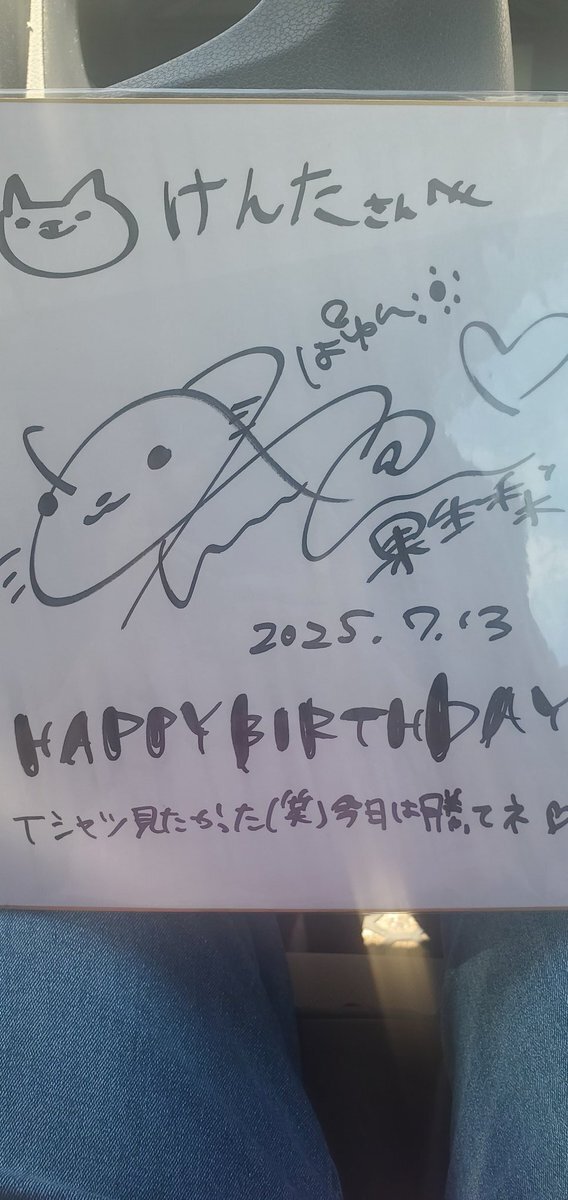 けんたさんへ
ぱゆん
果生ナギ
2025.7.13
HAPPY BIRTHDAY
Tシャツ見たかった(笑)今日は勝ってネ♡